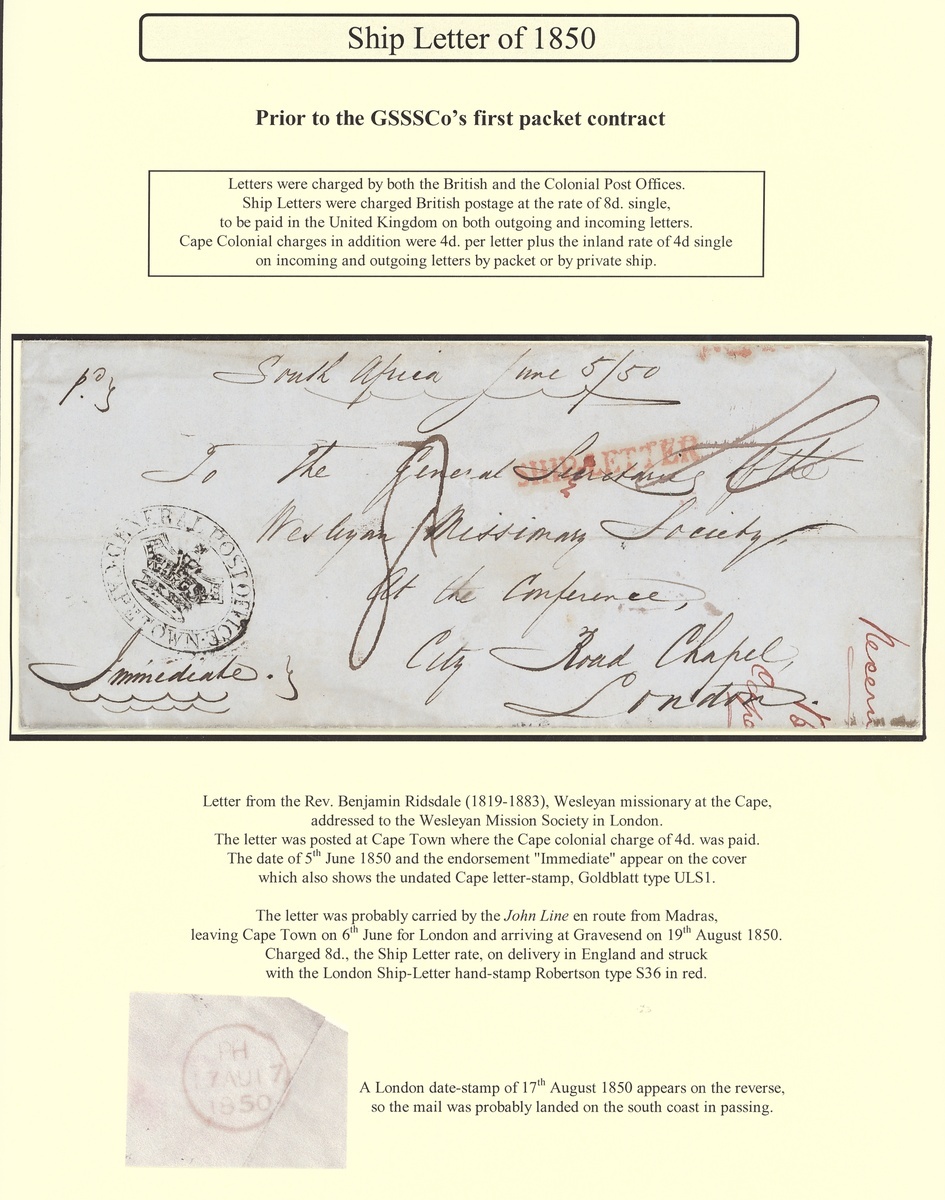 Ship Letter of 1850
Prior to the GSSSCo's first packet contract
Letters were charged by both the British and the Colonial Post Offices.
Ship Letters were charged British postage at the rate of 8d. single,
to be paid in the United Kingdom on both outgoing and incoming letters.
Cape Colonial charges in addition were 4d. per letter plus the inland rate of 4d single
on incoming and outgoing letters by packet or by private ship.
pd
South Africa June 5/50
SHIP LETTER
To the General Secretaries of the
Wesleyan Missionary Society,
At the Conference,
City Road Chapel,
London.
GENERAL POST OFFICE
Immediate.
8
Letter from the Rev. Benjamin Ridsdale (1819-1883), Wesleyan missionary at the Cape,
addressed to the Wesleyan Mission Society in London.
The letter was posted at Cape Town where the Cape colonial charge of 4d. was paid.
The date of 5th June 1850 and the endorsement "Immediate" appear on the cover
which also shows the undated Cape letter-stamp, Goldblatt type ULS1.
The letter was probably carried by the John Line en route from Madras,
leaving Cape Town on 6th June for London and arriving at Gravesend on 19th August 1850.
Charged 8d., the Ship Letter rate, on delivery in England and struck
with the London Ship-Letter hand-stamp Robertson type S36 in red.
PH
17 AU 17
1850
A London date-stamp of 17th August 1850 appears on the reverse,
so the mail was probably landed on the south coast in passing.